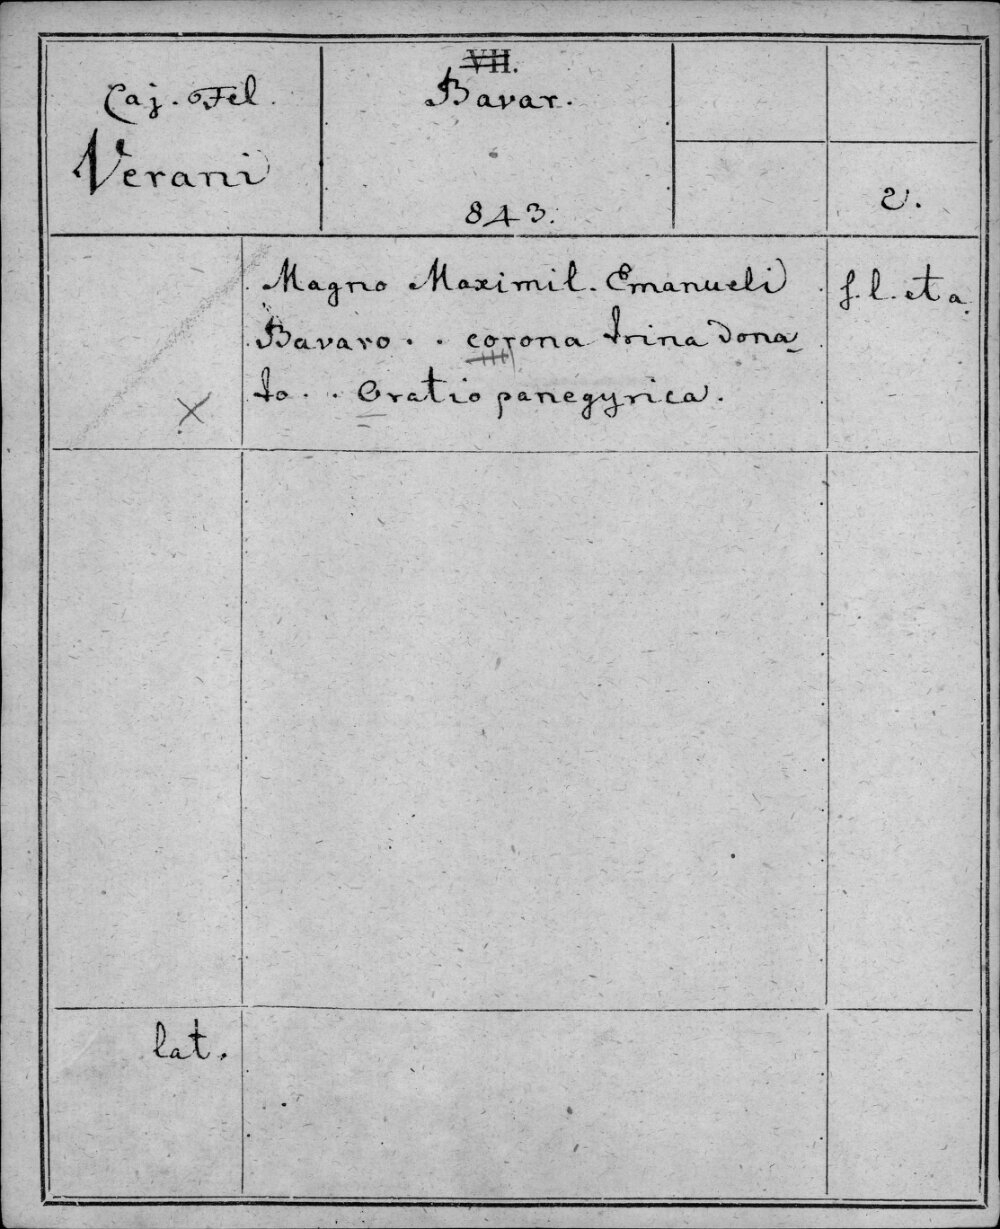 VII.
Caj. Fel.
Bavar.
Verani
843.
2.
Magno Maximil. Emanueli
s. l. et a.
Bavaro . . corona trina dona-
to . . Oratio panegyrica.
lat.